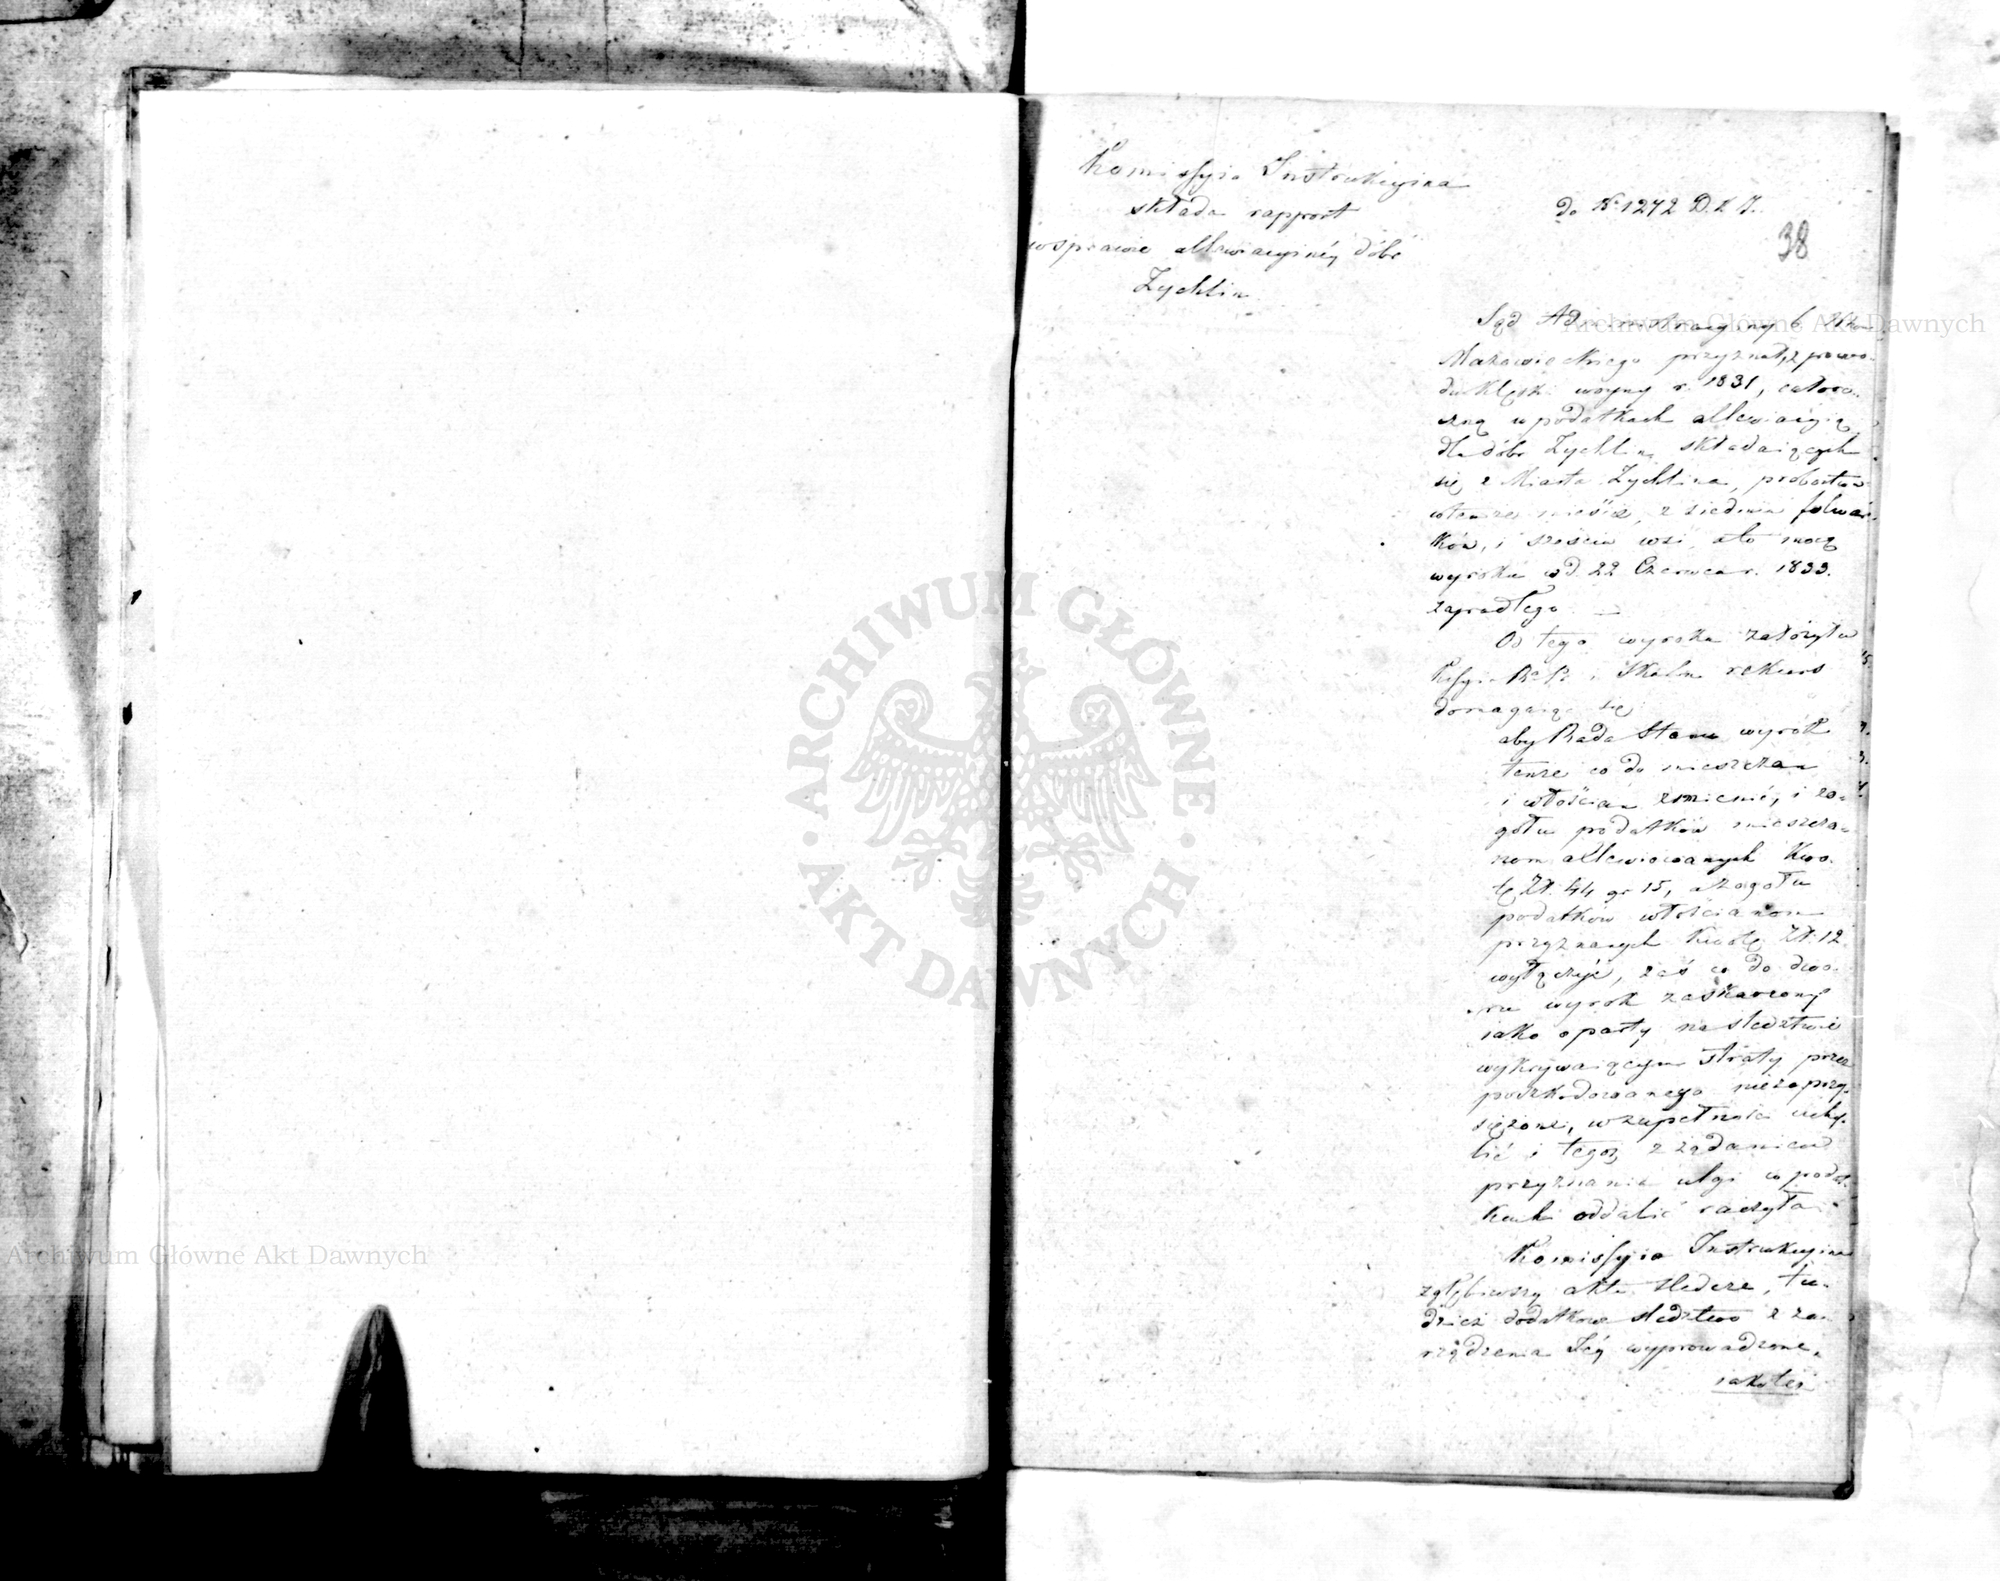 Komissyia Instrukcyina
składa rapport
w sprawie allewiacyinéy dóbr
Żychlin
do No 1272 D.K.I.
38
Sąd Administracyiny b. Wdz.
Mazowieckiego przyznał, z powo-
du klęski woyny r. 1831, całoro-
czną w podatkach allewiacyią
dla dóbr Żychlina składaiących
się z Miasta Żychlina, probostwa
w temże mieście, z siedmiu folwar-
ków, i sześciu wsi, a to mocą
wyroku w d. 22 Czerwca r. 1833.
zapadłego. —
Od tego wyroku założyła
i Skarbu rekurs
domagaiąc się
aby Rada Stanu wyrok
tenże co do mieszczan
i włościan zmienić, i z o-
gółu podatków mieszcza-
nom allewiowanych kwo-
tę Zł. 44 gr 15, a z ogółu
podatków włościanom
przyznanych kwotę Zł. 12
wyłączyć, zaś co do dwo-
ru wyrok zaskarżony
iako oparty na śledztwie
wykrywaiącym straty przez
poszkodowanego niezaprzy-
siężone, w zupełności uchy-
lić i tegoż z żądaniem
przyznania ulgi w podat-
kach oddalić raczyła.
Komissyia Instrukcyina
zgłębiwszy akta śledcze, tu-
dzież dodatkowe śledztwo z za-
rządzenia Jéy wyprowadzone,
iakoteż
Archiwum Główne Akt Dawnych
Archiwum Główne Akt Dawnych
ARCHIWUM GŁÓWNE · AKT DAWNYCH ·